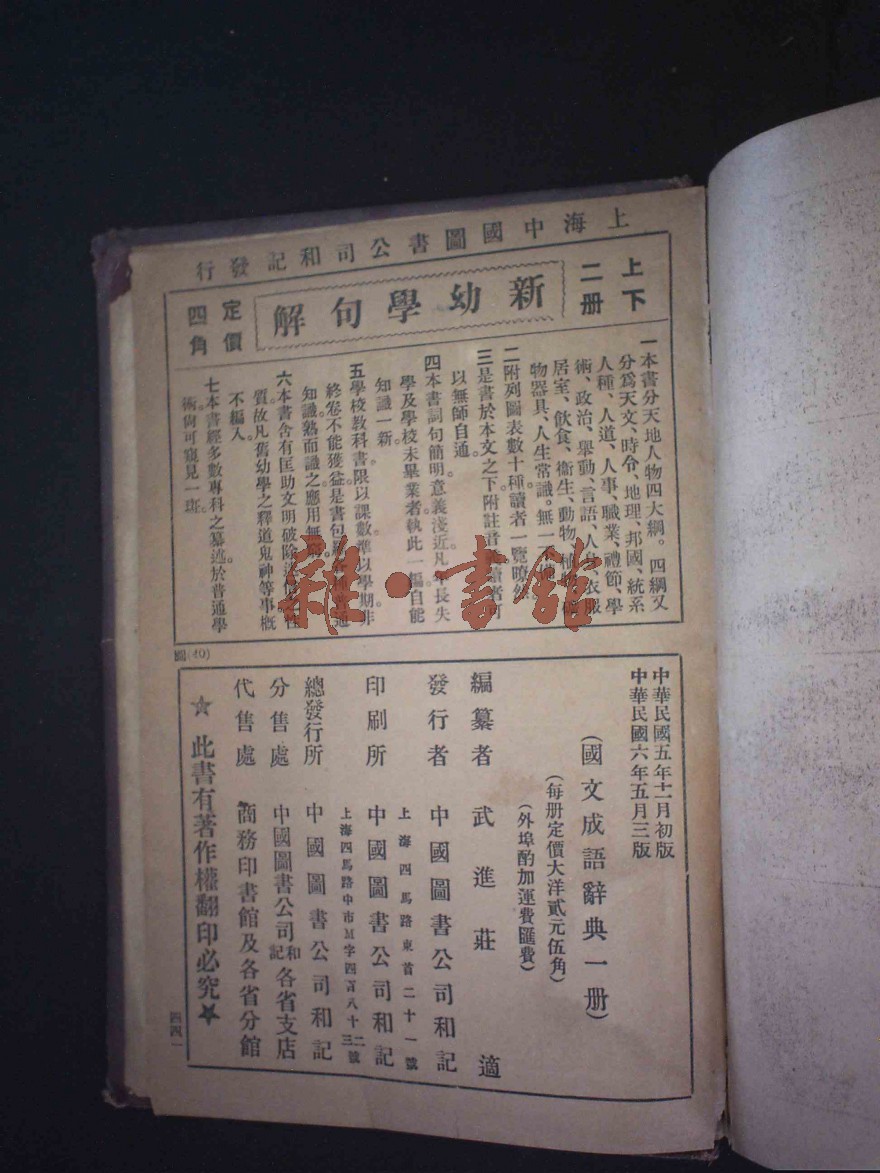 上海中國圖書公司和記發行
上下
二册
新幼學句解
定價
四角
一本書分天地人物四大綱。四綱又
分爲天文、時令、地理、邦國、統系
人種、人道、人事、職業、禮節、學
術、政治、舉動、言語、人身、衣服
居室、飲食、衞生、動物、植物、礦
物器具、人生常識。無一不備
二附列圖表數十種讀者一覽暸然
三是書於本文之下附註音義讀者可
以無師自通。
四本書詞句簡明。意義淺近。凡年長失
學及學校未畢業者。執此一編自能
知識一新。
五學校教科書。限以課數。準以學期。非
終卷不能獲益。是書包
知識。熟而識之。應用無窮。
六本書含有匡助文明破除迷信之性
質。故凡舊幼學之釋道鬼神等事概
不編入。
七本書經多數專科之纂述。於普通學
術。尙可窺見一斑。
雜·書館
圖(40)
中華民國五年十一月初版
中華民國六年五月三版
(國文成語辭典一册)
(每册定價大洋貳元伍角)
(外埠酌加運費匯費)
編纂者 武進莊適
發行者 中國圖書公司和記
上海四馬路東首二十一號
印刷所 中國圖書公司和記
上海四馬路中市M字四百八十三二號
總發行所 中國圖書公司和記
分售處 中國圖書公司和記各省支店
代售處 商務印書館及各省分館
★此書有著作權翻印必究★
四四一